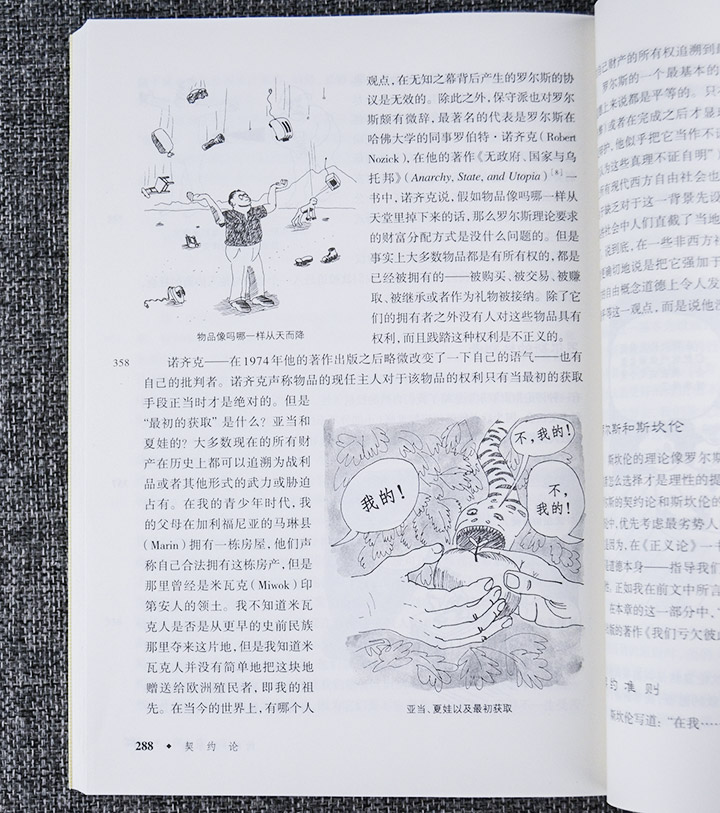 观点,在无知之幕背后产生的罗尔斯的协
议是无效的。除此之外,保守派也对罗尔
斯颇有微辞,最著名的代表是罗尔斯在
哈佛大学的同事罗伯特·诺齐克(Robert
Nozick),在他的著作《无政府、国家与乌
托邦》(Anarchy, State, and Utopia)[8]一
书中,诺齐克说,假如物品像吗哪一样从
天堂里掉下来的话,那么罗尔斯理论要求
的财富分配方式是没什么问题的。但是
事实上大多数物品都是有所有权的,都是
已经被拥有的——被购买、被交易、被赚
取、被继承或者作为礼物被接纳。除了它
们的拥有者之外没有人对这些物品具有
权利,而且践踏这种权利是不正义的。
物品像吗哪一样从天而降
358
诺齐克——在1974年他的著作出版之后略微改变了一下自己的语气——也有
自己的批判者。诺齐克声称物品的现任主人对于该物品的权利只有当最初的获取
手段正当时才是绝对的。但是
“最初的获取”是什么?亚当和
夏娃的?大多数现在的所有财
产在历史上都可以追溯为战利
品或者其他形式的武力或胁迫
占有。在我的青少年时代,我
的父母在加利福尼亚的马琳县
(Marin)拥有一栋房屋,他们声
称自己合法拥有这栋房产,但是
那里曾经是米瓦克(Miwok)印
第安人的领土。我不知道米瓦
克人是否是从更早的史前民族
那里夺来这片地,但是我知道米
瓦克人并没有简单地把这块地
赠送给欧洲殖民者,即我的祖
先。在当今的世界上,有哪个人
我的!
不,我的!
不,
我的!
亚当、夏娃以及最初获取
288 ◆ 契约论
自己财产的所有权追溯到最
罗尔斯的一个最基本的
上来说都是平等的。只
或者在完成之后才显
他似乎把它当作不
为这些真理不证自明”
所有现代西方自由社会也
缺乏对于这一背景先设
社会中人们直截了当地
说到底,在一些非西方社
确切地说是把它强加于
自由概念道德上令人发
这一观点,而是说他没
尔斯和斯坎伦
斯坎伦的理论像罗尔斯
怎么选择才是理性的提
斯的契约论和斯坎伦的
中,优先考虑最劣势人
因为,在《正义论》一书
道德本身——指导我们
正如我在前文中所言
在本章的这一部分中,
版的著作《我们亏欠彼此
约准则
斯坎伦写道:“在我……